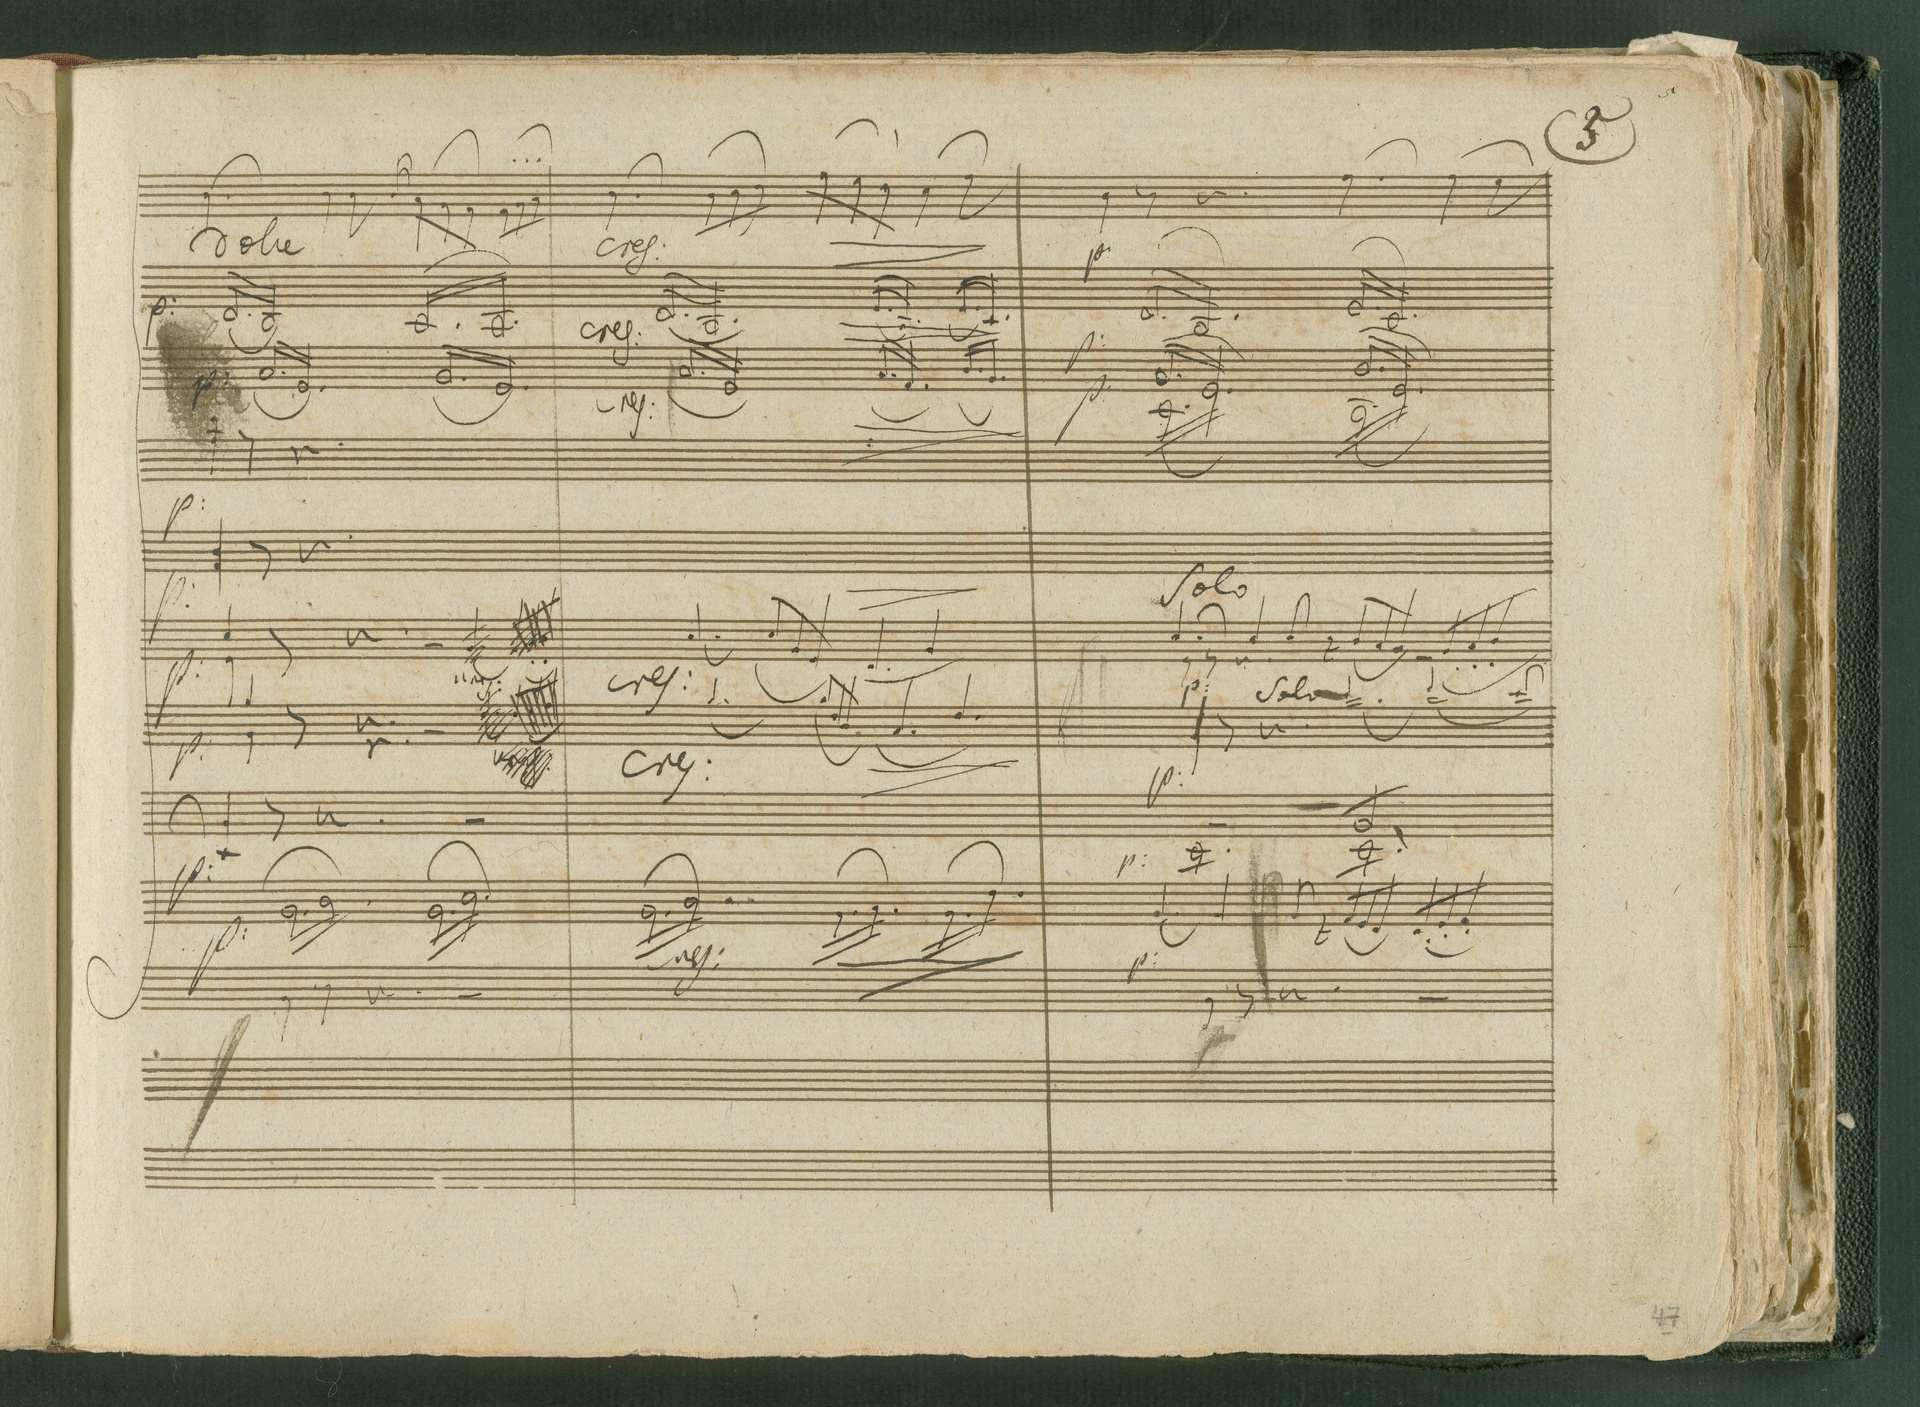 5
dolce
cres:
p:
p:
cres:
p:
p:
cres:
p:
p:
p:
Solo
p:
cres:
p:
Solo
p:
cres:
p:
p:
p:
p:
cres:
p:
47